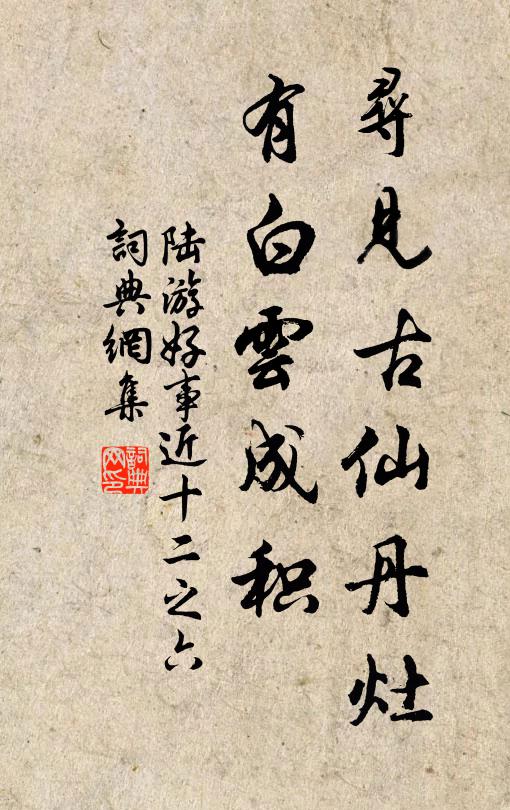 尋見古仙丹灶
有白雲成积
陆游好事近十二之六
詞典網集
詞典网印